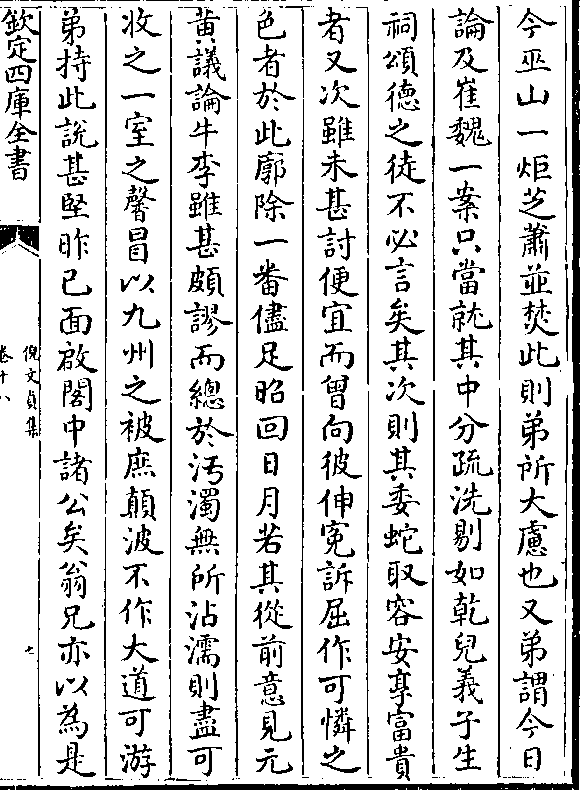 今巫山一炬芝蕭並焚此則弟所大慮也又弟謂今日
論及崔魏一案只當就其中分疏洗剔如乾兒義子生
祠頌德之徒不必言矣其次則其委蛇取容安享富貴
者又次雖未甚討便宜而曾向彼伸冤訴屈作可憐之
色者於此廓除一番儘足昭回日月若其從前意見元
黄議論牛李雖甚頗謬而總於汚濁無所沾濡則盡可
收之一室之馨冒以九州之被庶顛波不作大道可游
弟持此說甚堅昨已面啟閣中諸公矣翁兄亦以為是
欽定四庫全書
倪文貞集
卷十八
七